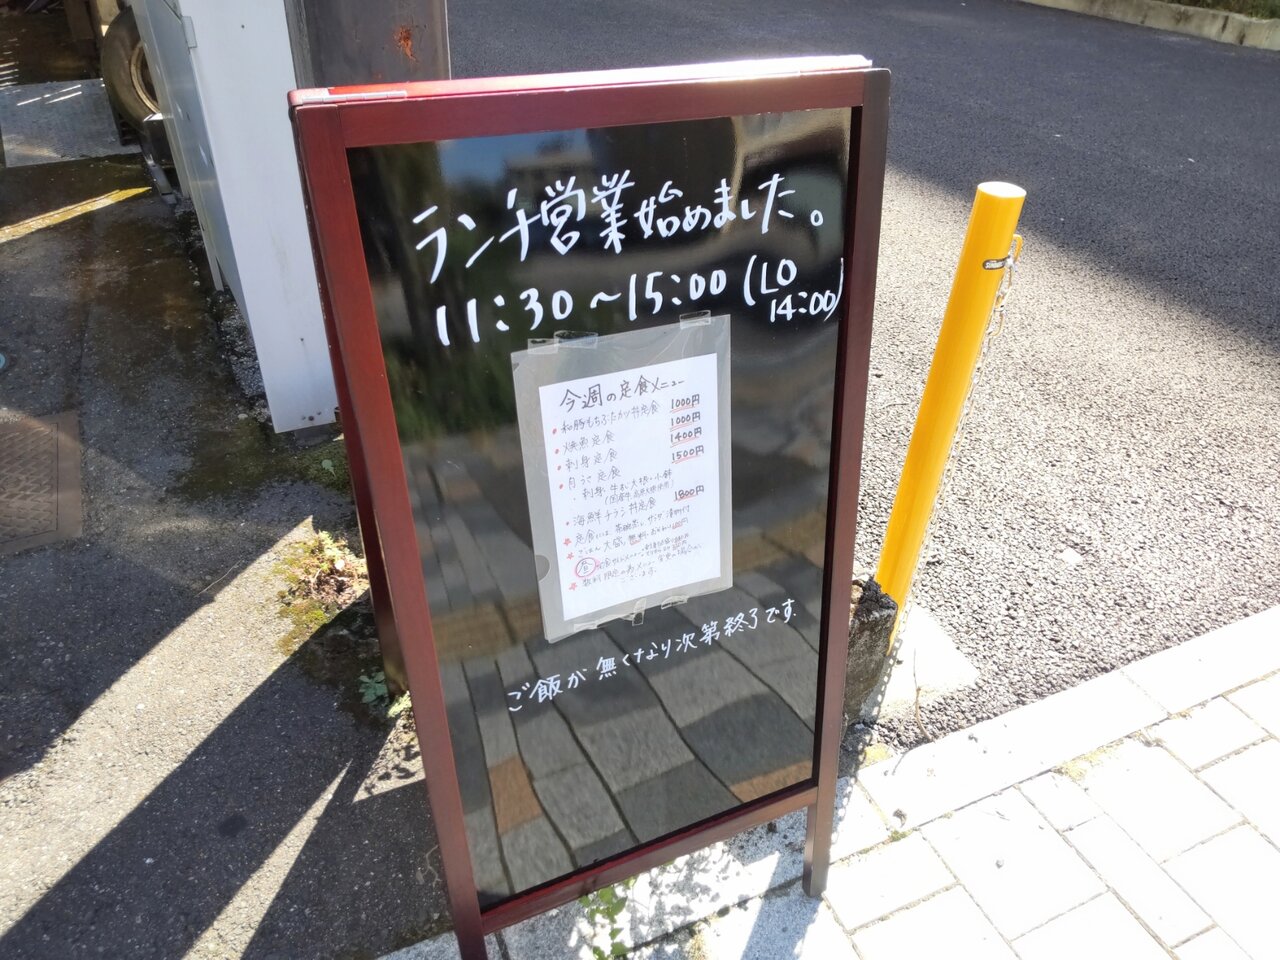 ランチ営業始めました。
11:30～15:00 (LO 14:00)
今週の定食メニュー
• 和豚もちぶたカツ丼定食 1000円
• 焼魚定食 1000円
• 刺身定食 1400円
• 自うま定食 1500円
・刺身、牛すじ大根・小鉢
• 海鮮チラシ丼定食 1800円
定食には、茶碗蒸し、サラダ、漬物付
ごはん 大盛 無料、おかわり100円
ご飯が無くなり次第終了です.